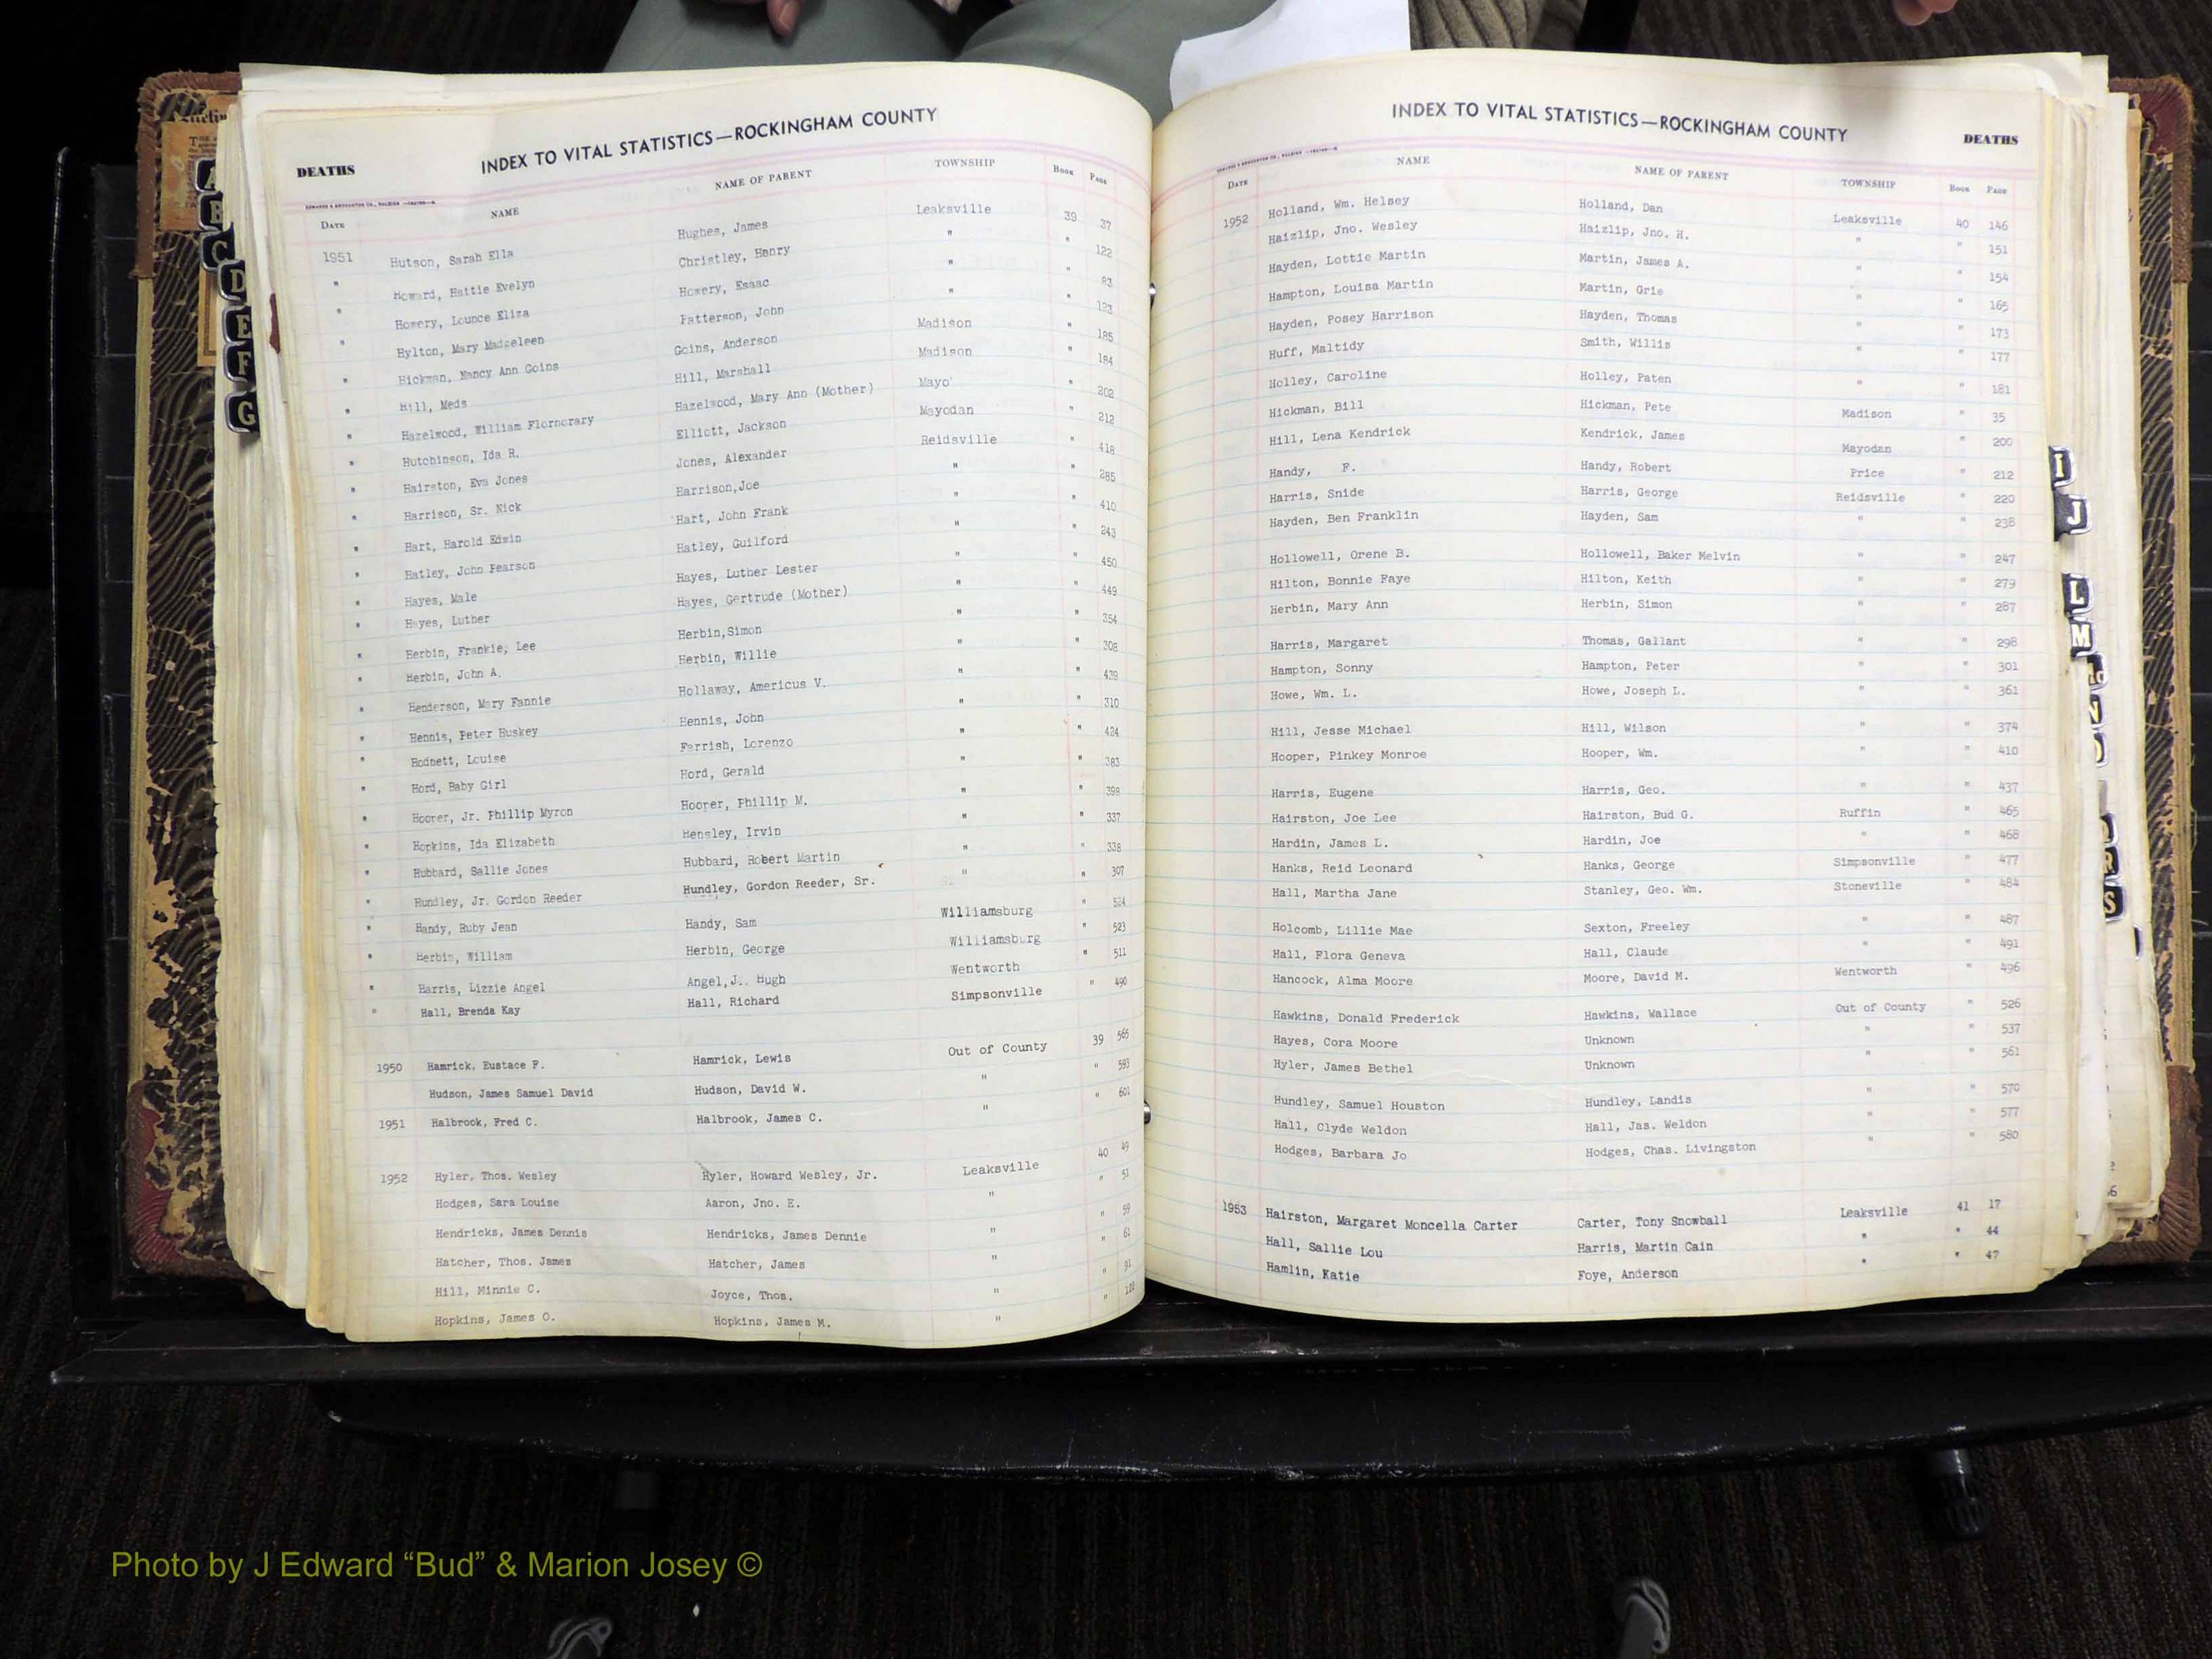 INDEX TO VITAL STATISTICS—ROCKINGHAM COUNTY
DEATHS
DATE NAME NAME OF PARENT TOWNSHIP BOOK PAGE
1951 Hutson, Sarah Ella Hughes, James Leaksville 39 37
" Howard, Hattie Evelyn Christley, Henry " " 122
" Howery, Lounce Eliza Howery, Esaac " " 83
" Hylton, Mary Madgeleen Patterson, John " " 123
" Hickman, Nancy Ann Goins Goins, Anderson Madison " 185
" Hill, Meds Hill, Marshall Madison " 184
" Hazelwood, William Flornorary Hazelwood, Mary Ann (Mother) Mayo " 202
" Hutchinson, Ida R. Elliott, Jackson Mayodan " 212
" Hairston, Eva Jones Jones, Alexander Reidsville " 418
" Harrison, Sr. Nick Harrison,Joe " " 285
" Hart, Harold Edwin Hart, John Frank " " 410
" Hatley, John Pearson Hatley, Guilford " " 243
" Hayes, Male Hayes, Luther Lester " " 450
" Hayes, Luther Hayes, Gertrude (Mother) " " 449
" Herbin, Frankie, Lee Herbin,Simon " " 354
" Herbin, John A. Herbin, Willie " " 308
" Henderson, Mary Fannie Hollaway, Americus V. " " 439
" Hennis, Peter Huskey Hennis, John " " 310
" Hodnett, Louise Farrish, Lorenzo " " 424
" Hord, Baby Girl Hord, Gerald " " 383
" Hooper, Jr. Phillip Myron Hooper, Phillip M. " " 398
" Hopkins, Ida Elizabeth Hensley, Irvin " " 337
" Hubbard, Sallie Jones Hubbard, Robert Martin " " 338
" Hundley, Jr. Gordon Reeder Hundley, Gordon Reeder, Sr. " " 307
" Handy, Ruby Jean Handy, Sam Williamsburg " 524
" Herbin, William Herbin, George Williamsburg " 523
" Harris, Lizzie Angel Angel,J.. Hugh Wentworth " 511
" Hall, Brenda Kay Hall, Richard Simpsonville " 490
1950 Hamrick, Eustace F. Hamrick, Lewis Out of County 39 565
Hudson, James Samuel David Hudson, David W. " " 593
1951 Halbrook, Fred C. Halbrook, James C. " " 601
1952 Hyler, Thos. Wesley Hyler, Howard Wesley, Jr. Leaksville 40 49
Hodges, Sara Louise Aaron, Jno. E. " " 51
Hendricks, James Dennis Hendricks, James Dennie " " 59
Hatcher, Thos. James Hatcher, James " " 61
Hill, Minnie C. Joyce, Thos. " " 91
Hopkins, James O. Hopkins, James M. " "
INDEX TO VITAL STATISTICS—ROCKINGHAM COUNTY
DEATHS
DATE NAME NAME OF PARENT TOWNSHIP BOOK PAGE
1952 Holland, Wm. Helsey Holland, Dan Leaksville 40 146
Haizlip, Jno. Wesley Haizlip, Jno. H. " " 151
Hayden, Lottie Martin Martin, James A. " " 154
Hampton, Louisa Martin Martin, Grie " " 165
Hayden, Posey Harrison Hayden, Thomas " " 173
Huff, Maltidy Smith, Willis " " 177
Holley, Caroline Holley, Paten " " 181
Hickman, Bill Hickman, Pete Madison " 35
Hill, Lena Kendrick Kendrick, James Mayodan " 200
Handy, F. Handy, Robert Price " 212
Harris, Snide Harris, George Reidsville " 220
Hayden, Ben Franklin Hayden, Sam " " 238
Hollowell, Orene B. Hollowell, Baker Melvin " " 247
Hilton, Bonnie Faye Hilton, Keith " " 279
Herbin, Mary Ann Herbin, Simon " " 287
Harris, Margaret Thomas, Gallant " " 298
Hampton, Sonny Hampton, Peter " " 301
Howe, Wm. L. Howe, Joseph L. " " 361
Hill, Jesse Michael Hill, Wilson " " 374
Hooper, Pinkey Monroe Hooper, Wm. " " 410
Harris, Eugene Harris, Geo. " " 437
Hairston, Joe Lee Hairston, Bud G. Ruffin " 465
Hardin, James L. Hardin, Joe " " 468
Hanks, Reid Leonard Hanks, George Simpsonville " 477
Hall, Martha Jane Stanley, Geo. Wm. Stoneville " 484
Holcomb, Lillie Mae Sexton, Freeley " " 487
Hall, Flora Geneva Hall, Claude " " 491
Hancock, Alma Moore Moore, David M. Wentworth " 496
Hawkins, Donald Frederick Hawkins, Wallace Out of County " 526
Hayes, Cora Moore Unknown " " 537
Hyler, James Bethel Unknown " " 561
Hundley, Samuel Houston Hundley, Landis " " 570
Hall, Clyde Weldon Hall, Jas. Weldon " " 577
Hodges, Barbara Jo Hodges, Chas. Livingston " " 580
1953 Hairston, Margaret Moncella Carter Carter, Tony Snowball Leaksville 41 17
Hall, Sallie Lou Harris, Martin Cain " " 44
Hamlin, Katie Foye, Anderson " " 47
B
C
D
E
F
G
I
J
L
M
N
R
S
Photo by J Edward “Bud” & Marion Josey ©